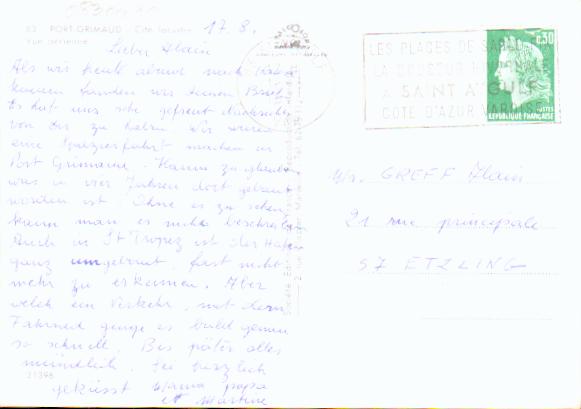 83 PORT-GRIMAUD - Cité lacustre
Vue aérienne
17.8.
Lieber Alain
Als wir heute abend nach Hause
kamen fanden wir deinen Brief.
Es hat uns sehr gefreut Nachricht
von Dir zu haben. Wir waren
eine Spazierfahrt machen in
Port Grimaud. Kaum zu glauben
was in vier Jahren dort gebaut
worden ist. Ohne es zu sehen
kann man es nicht beschreiben
Auch in St Tropez ist der Hafen
ganz umgebaut, fast nicht
mehr zu erkennen. Aber
welch ein Verkehr, mit dem
Fahrrad ginge es bald genau
so schnell. Bis später alles
mündlich. Sei herzlich
geküsst Mama papa
et Martine
21398
LES PLAGES DE SABLE
LA DOUCEUR
A SAINT AYGULF
COTE D'AZUR VAROISE
0,30
POSTES
REPUBLIQUE FRANÇAISE
Mr. GREFF Alain
21 rue principale
57 ETZLING